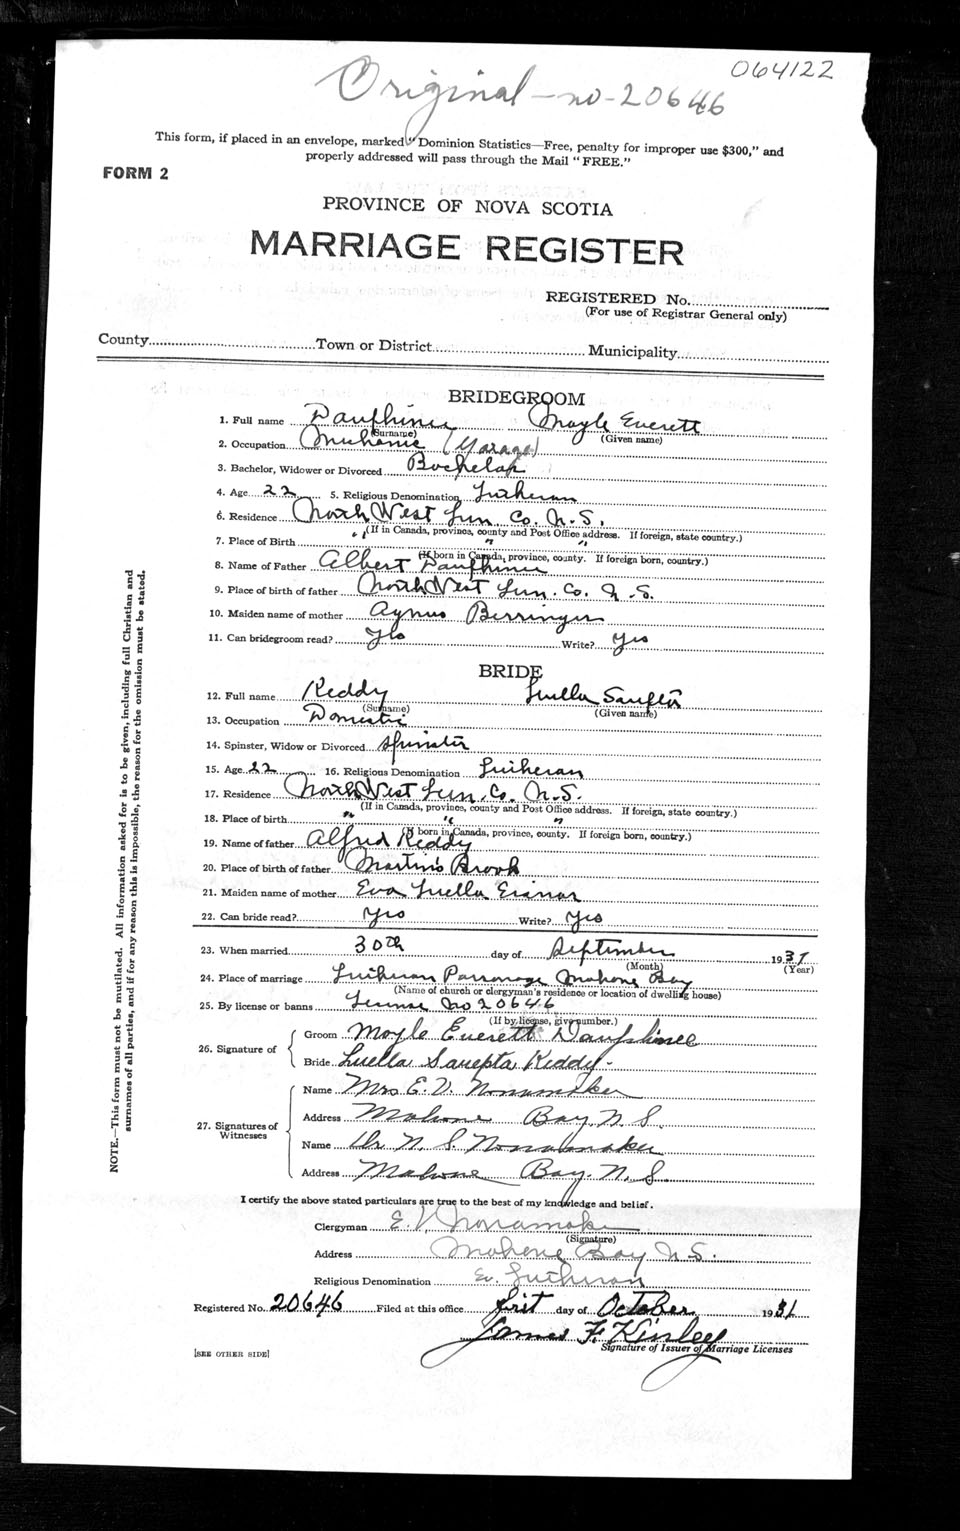 064122
Original - no - 20646
This form, if placed in an envelope, marked "Dominion Statistics—Free, penalty for improper use $300," and
properly addressed will pass through the Mail "FREE."
FORM 2
PROVINCE OF NOVA SCOTIA
MARRIAGE REGISTER
REGISTERED No.
(For use of Registrar General only)
County Town or District Municipality
BRIDEGROOM
1. Full name Dauphinee Moyle Everett
(Surname) (Given name)
2. Occupation Mechanic (Garage)
3. Bachelor, Widower or Divorced Bachelor
4. Age 22 5. Religious Denomination Lutheran
6. Residence North West Lun. Co. N.S.
(If in Canada, province, county and Post Office address. If foreign, state country.)
7. Place of Birth " " " "
(If born in Canada, province, county. If foreign born, country.)
8. Name of Father Albert Dauphinee
9. Place of birth of father North West Lun. Co. N.S.
10. Maiden name of mother Agnus Berringer
11. Can bridegroom read? Yes Write? Yes
BRIDE
12. Full name Keddy Luella Saufta
(Surname) (Given name)
13. Occupation Domestic
14. Spinster, Widow or Divorced Spinster
15. Age 22 16. Religious Denomination Lutheran
17. Residence North West Lun. Co. N.S.
(If in Canada, province, county and Post Office address. If foreign, state country.)
18. Place of birth " " "
(If born in Canada, province, county. If foreign born, country.)
19. Name of father Alfred Keddy
20. Place of birth of father Martin's Brook
21. Maiden name of mother Eva Luella
22. Can bride read? Yes Write? Yes
23. When married 30th day of September 1931
(Month) (Year)
24. Place of marriage Lutheran Parsonage Mahone Bay
(Name of church or clergyman's residence or location of dwelling house)
25. By license or banns License No 20646
(If by license, give number.)
26. Signature of
Groom Moyle Everett Dauphinee
Bride Luella Saurpta Keddy.
27. Signatures of Witnesses
Name Mrs E. V. Nonamaker
Address Mahone Bay, N.S.
Name Dr. N. S. Nonamaker
Address Mahone Bay, N.S.
I certify the above stated particulars are true to the best of my knowledge and belief.
Clergyman E. V. Nonamaker
(Signature)
Address Mahone Bay N.S.
Religious Denomination Ev. Lutheran
Registered No. 20646 Filed at this office first day of October 1931
James F. Kinley
Signature of Issuer of Marriage Licenses
[SEE OTHER SIDE]
NOTE.—This form must not be mutilated. All information asked for is to be given, including full Christian and
surnames of all parties, and if for any reason this is impossible, the reason for the omission must be stated.